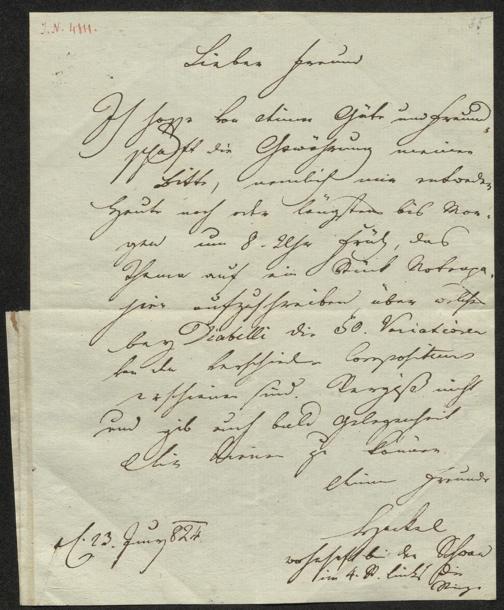 I. N. 4111.
35
Lieber Freund
Ich hoffe von deiner Güte und Freund-
schaft die Gewährung meiner
Bitte, nemlich mir entweder
heute noch oder längstens bis Mor-
gen um 8. Uhr früh, das
Thema auf ein Stück Notenpa-
pier aufzuschreiben über welches
bey Diabelli die 50. Variationen
von den verschied. Compositeurs
erschienen sind. Vergiß nicht
und gib auch bald Gelegenheit
Dir dienen zu können.
Deinem Freunde
Hackel
23. Juny 824
wohnhaft bei der
im 4. St. links die